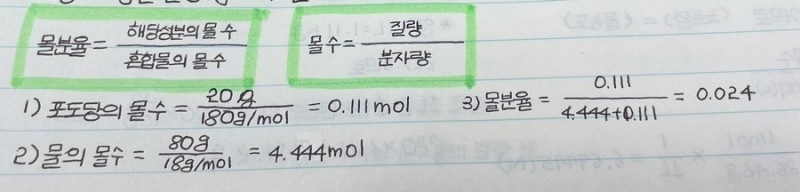 몰분율 = 해당성분의 몰 수 / 혼합물의 몰 수
몰수 = 질량 / 분자량
1) 포도당의 몰수 = 20g / 180g/mol = 0.111mol
2) 물의 몰수 = 80g / 18g/mol = 4.444mol
3) 몰분율 = 0.111 / 4.444+0.111 = 0.024